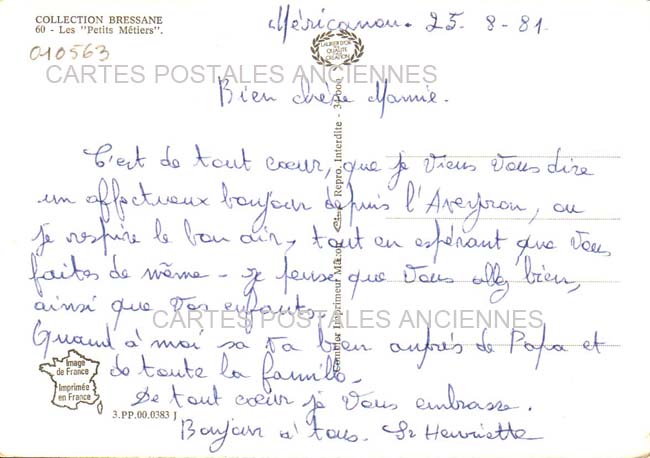 COLLECTION BRESSANE
60 - Les "Petits Métiers".
010563
Méricanou. 25-8-81.
LAURIER D'OR
QUALITE
CREATION
CARTES POSTALES ANCIENNES
Bien chère Mamie.
C'est de tout coeur, que je viens vous dire
un affectueux bonjour depuis l'Aveyron, ou
je respire le bon air, tout en espérant que vous
faites de même - je pense que vous allez bien,
ainsi que vos enfants,
CARTES POSTALES ANCIENNES
Quand à moi sa va bien auprès de Papa et
de toute la famille.
De tout coeur je vous embrasse.
Bonjour à tous. Sr Henriette
Combier Imprimeur Mâcon
Repro. Interdite -
Image
de France
Imprimée
en France
3.PP.00.0383 J